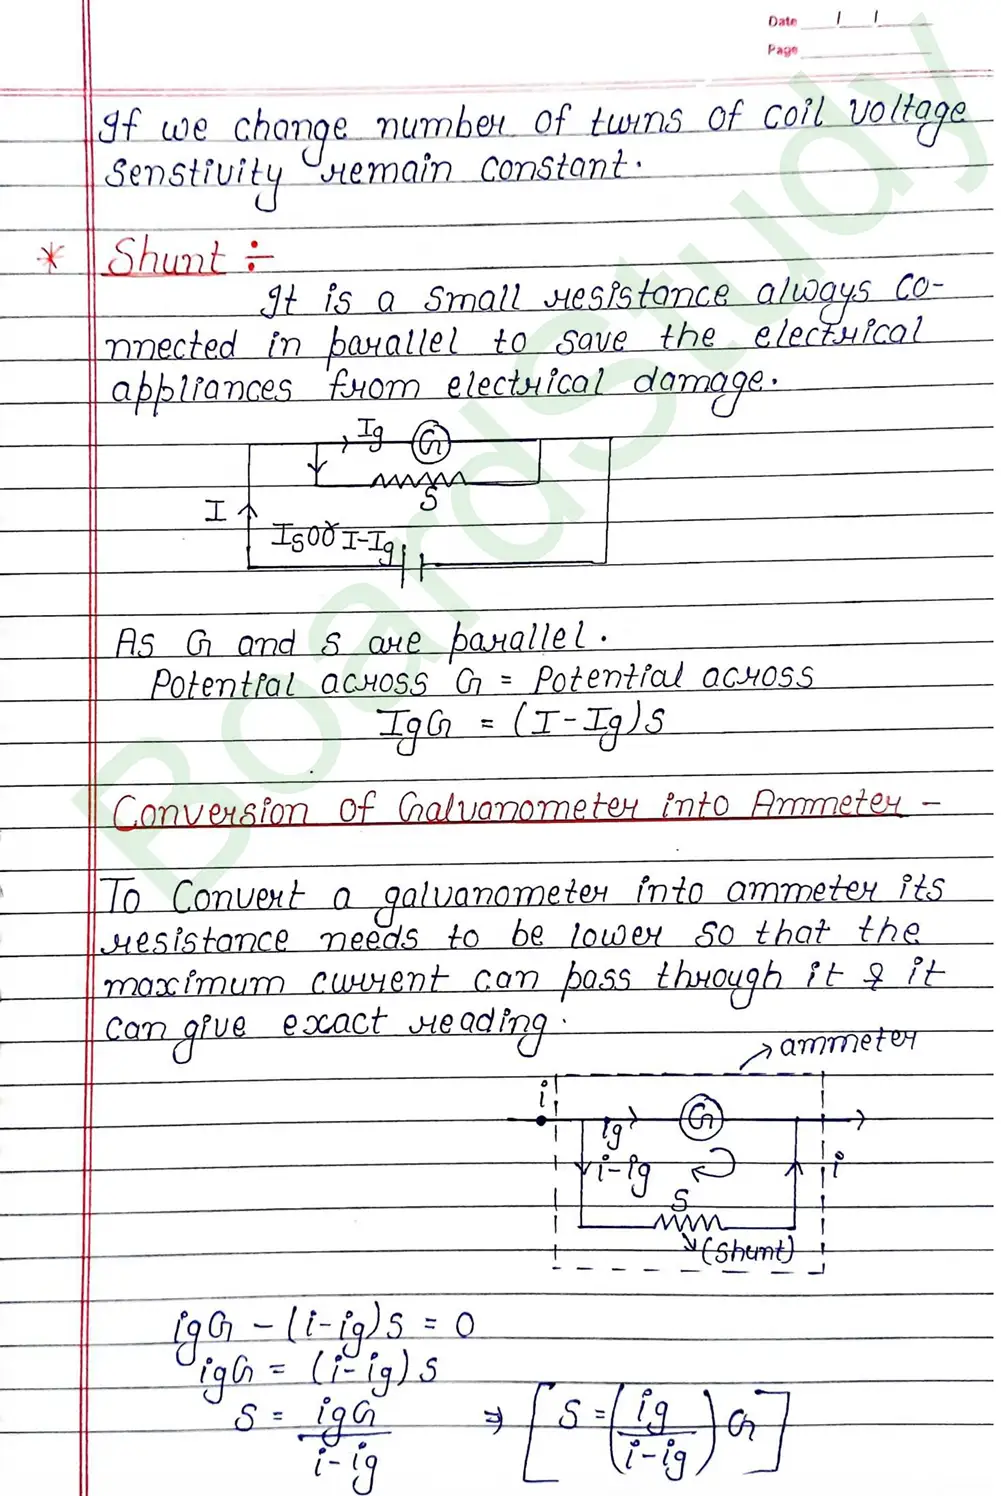 Date / /
Page
If we change number of turns of coil voltage
Senstivity remain constant.
* Shunt ÷
It is a small resistance always co-
nnected in parallel to save the electrical
appliances from electrical damage.
Ig G
S
I
Is or I-Ig
As G and S are parallel.
Potential across G = Potential across
IgG = (I-Ig)S
Conversion of Galvanometer into Ammeter -
To Convert a galvanometer into ammeter its
resistance needs to be lower so that the
maximum current can pass through it & it
can give exact reading.
→ ammeter
i
ig G
i-ig i
S
(Shunt)
igG - (i-ig)S = 0
igG = (i-ig)S
S = igG / i-ig ⇒ [S = (ig / i-ig) G]
BoardStudy